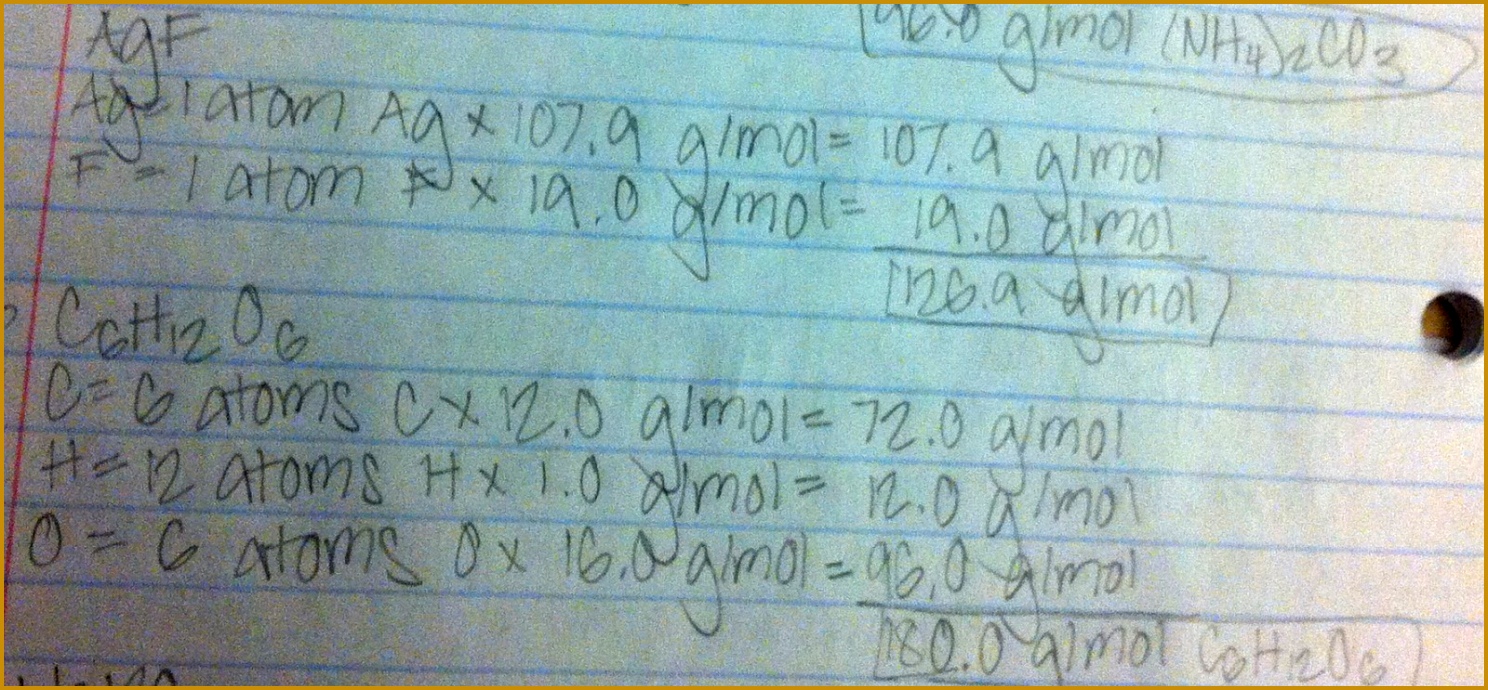 96.0 g/mol (NH₄)₂CO₃
AgF
Ag=1 atom Ag x 107.9 g/mol= 107.9 g/mol
F = 1 atom F x 19.0 g/mol= 19.0 g/mol
126.9 g/mol
C₆H₁₂O₆
C= 6 atoms C x 12.0 g/mol= 72.0 g/mol
H= 12 atoms H x 1.0 g/mol= 12.0 g/mol
O = 6 atoms O x 16.0 g/mol = 96.0 g/mol
180.0 g/mol C₆H₁₂O₆